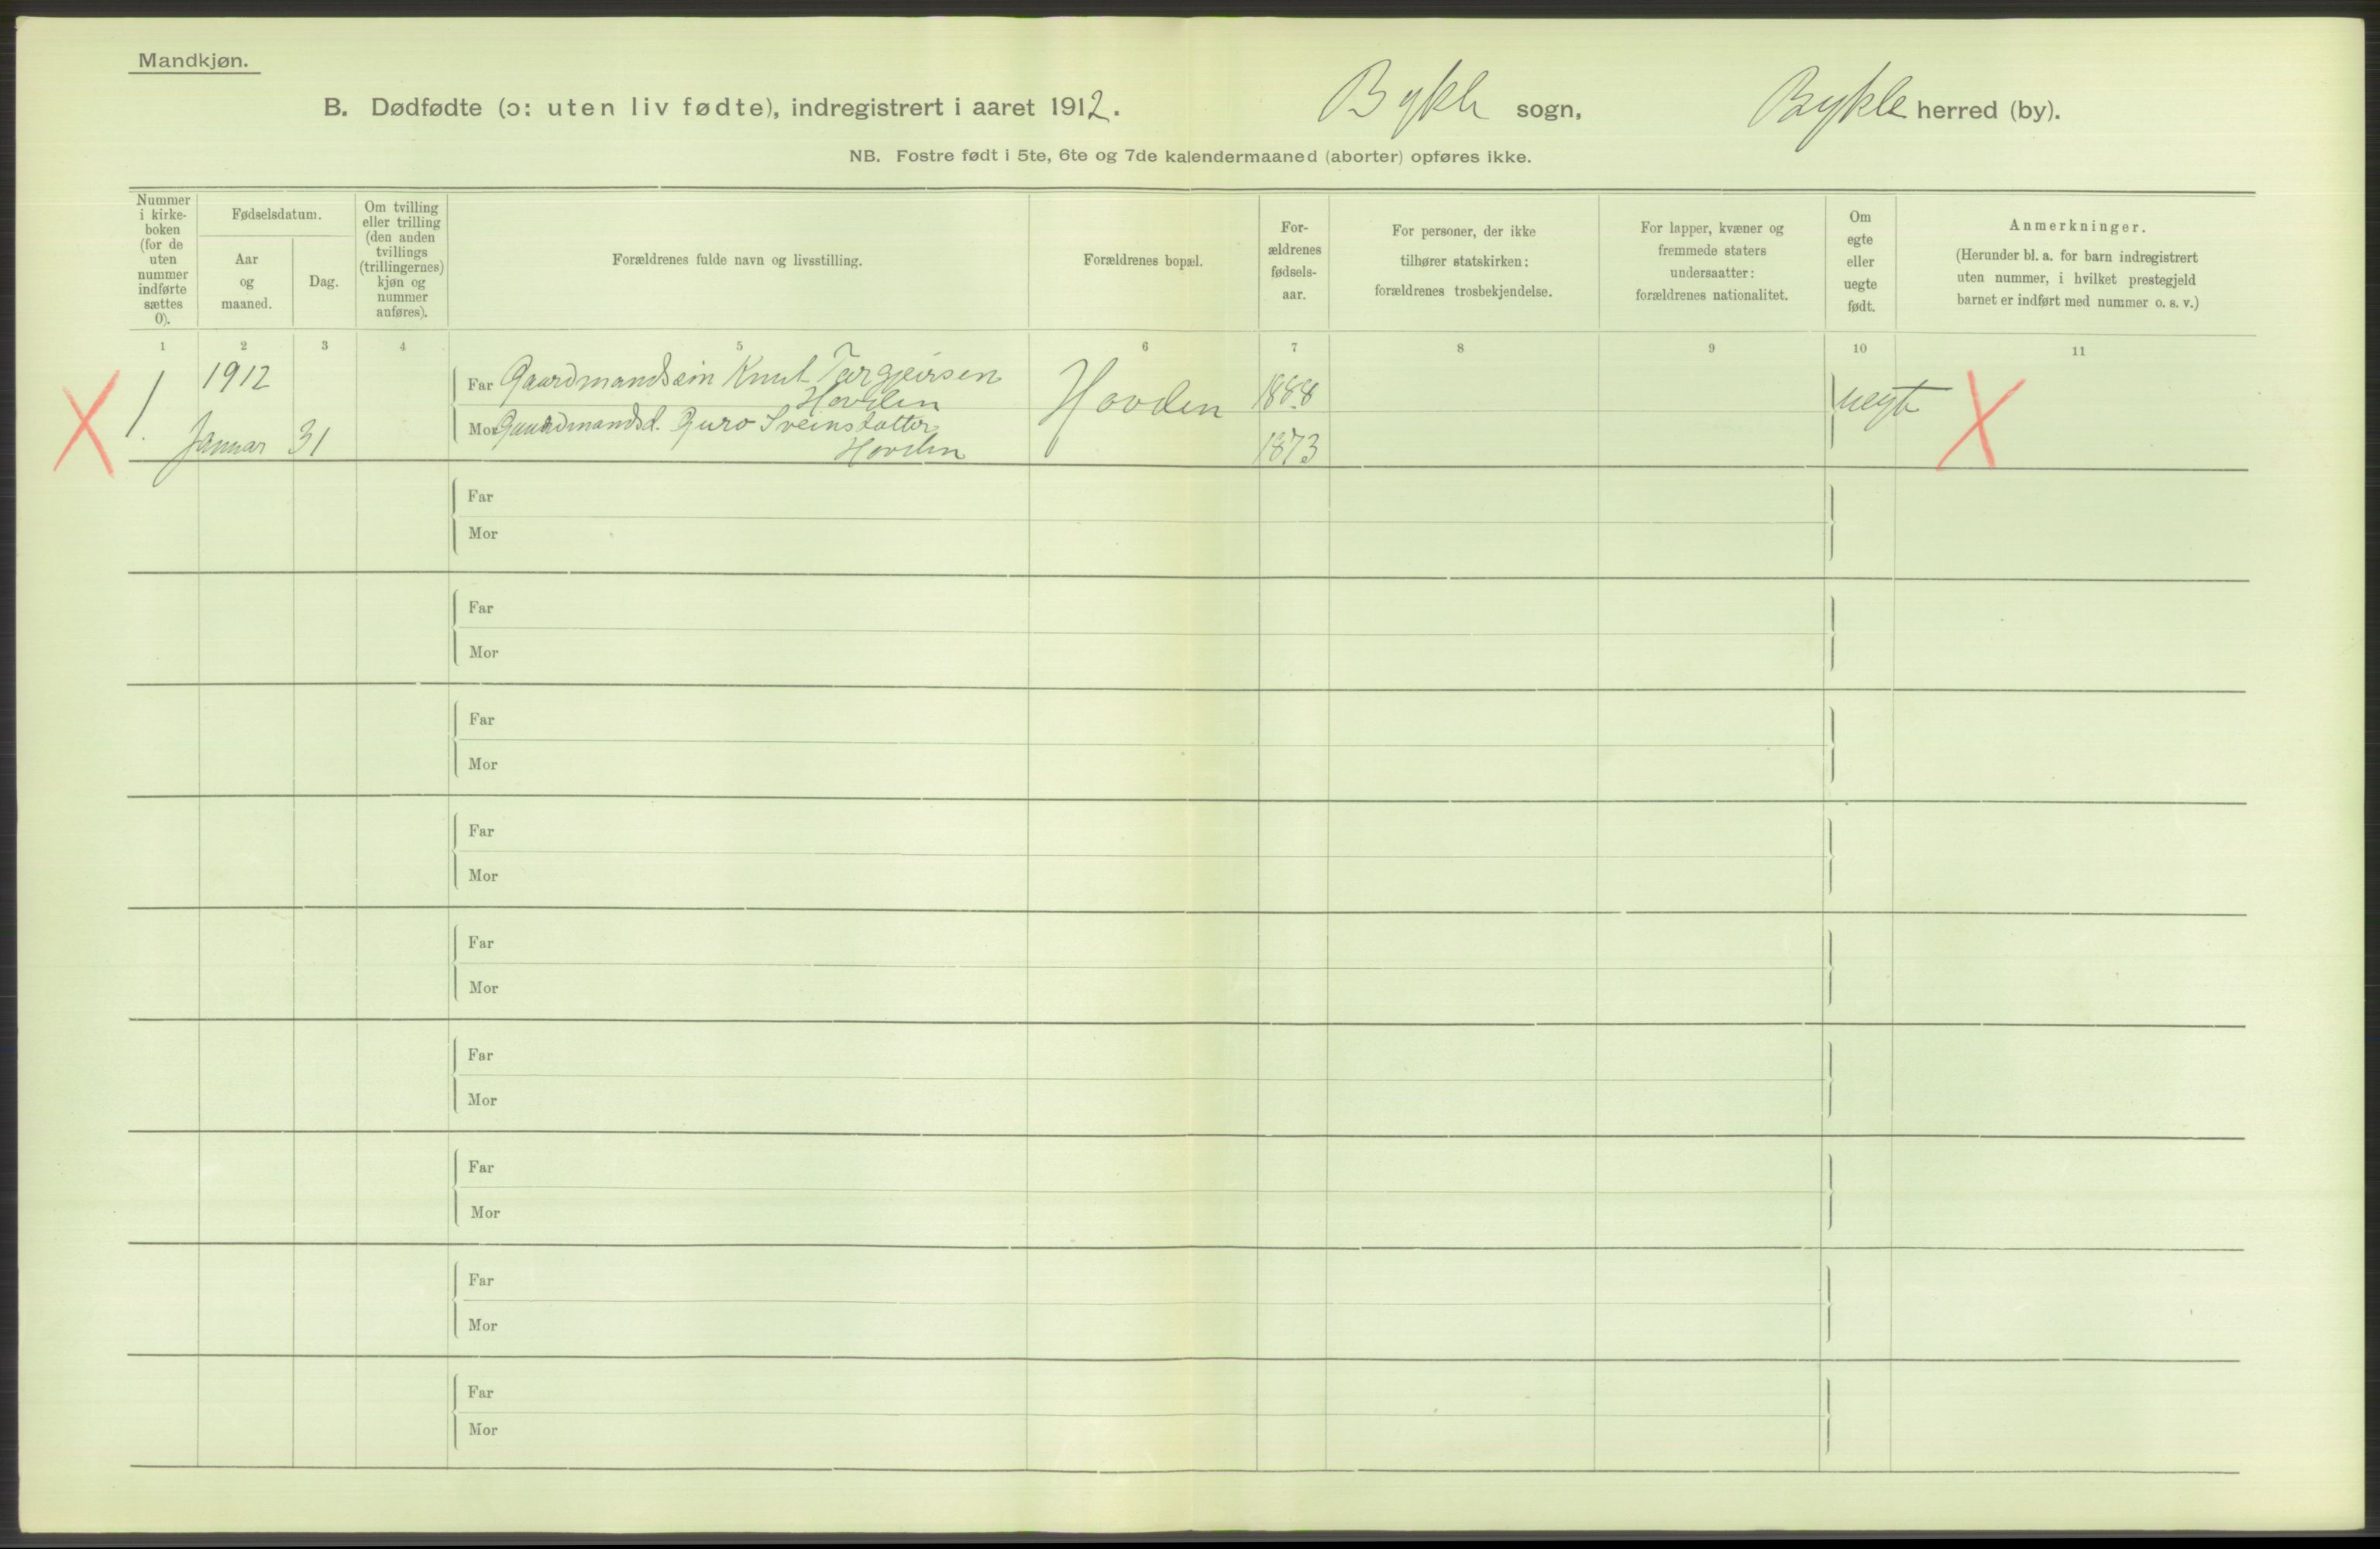 Mandkjøn.
B. Dødfødte (ɔ: uten liv fødte), indregistrert i aaret 1912. Bykle sogn, Bykle herred (by).
NB. Fostre født i 5te, 6te og 7de kalendermaaned (aborter) opføres ikke.
Nummer
i kirke-
boken
(for de
uten
nummer
indførte
sættes
0).
Fødselsdatum.
Aar
og
maaned.
Dag.
Om tvilling
eller trilling
(den anden
tvillings
(trillingernes)
kjøn og
nummer
anføres).
Forældrenes fulde navn og livsstilling.
Forældrenes bopæl.
For-
ældrenes
fødsels-
aar.
For personer, der ikke
tilhører statskirken:
forældrenes trosbekjendelse.
For lapper, kvæner og
fremmede staters
undersaatter:
forældrenes nationalitet.
Om
egte
eller
uegte
født.
Anmerkninger.
(Herunder bl. a. for barn indregistrert
uten nummer, i hvilket prestegjeld
barnet er indført med nummer o. s. v.)
1 2 3 4 5 6 7 8 9 10 11
1.
1912
Januar 31
Far Gaardmandssøn Knut Targjeirsen
Hovden
Mor Gaardmandsd. Guro Sveinsdatter
Hovden
Hovden
1888
1873
uegte
Far
Mor
Far
Mor
Far
Mor
Far
Mor
Far
Mor
Far
Mor
Far
Mor
Far
Mor
Far
Mor